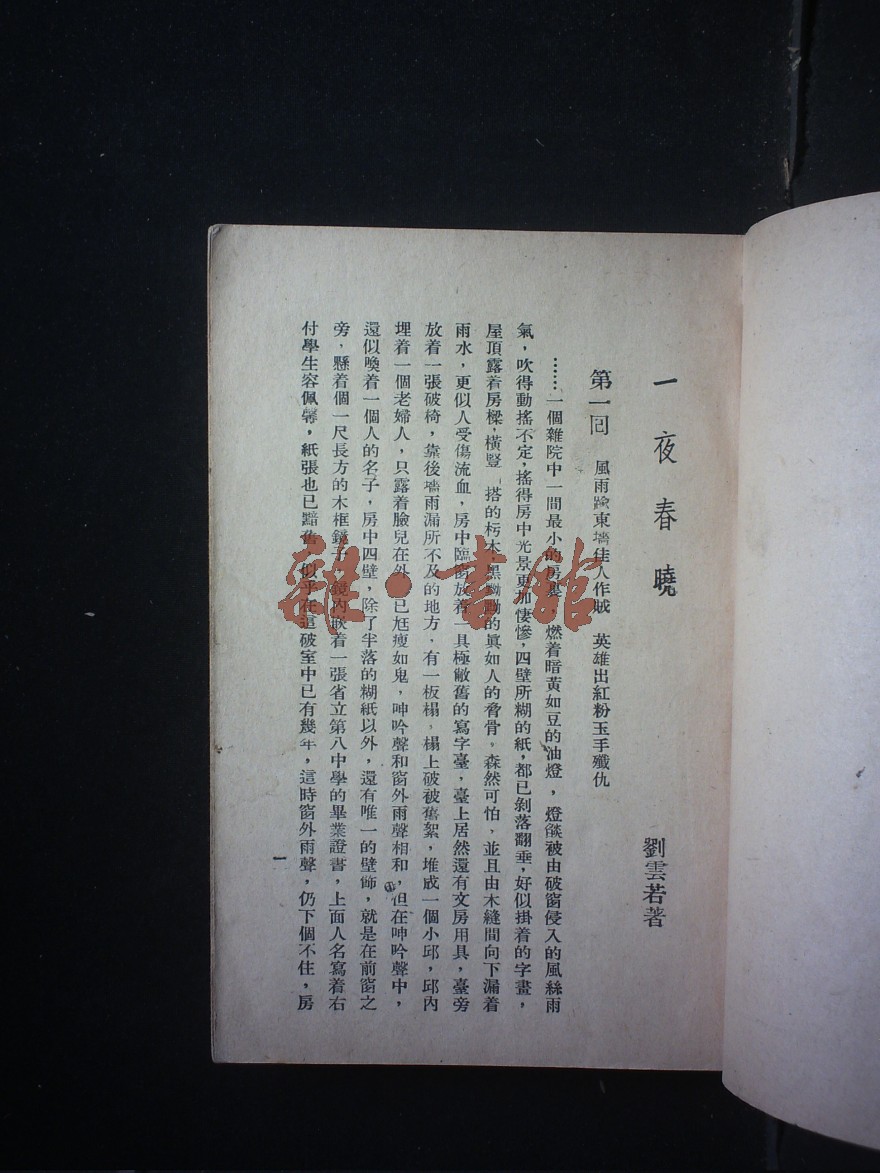 一夜春曉
劉雲若著
第一回　風雨踰東墻佳人作賊　英雄出紅粉玉手殲仇
……一個雜院中一間最小的房裏，燃着暗黃如豆的油燈，燈燄被由破窗侵入的風絲雨
氣，吹得動搖不定，搖得房中光景更加悽慘，四壁所糊的紙，都已剝落翻垂，好似掛着的字畫，
屋頂露着房樑，橫豎　搭的朽木，黑黝黝的眞如人的脅骨，森然可怕，並且由木縫間向下漏着
雨水，更似人受傷流血，房中臨窗放着一具極敝舊的寫字臺，臺上居然還有文房用具，臺旁
放着一張破椅，靠後墻雨漏所不及的地方，有一板榻，榻上破被舊絮，堆成一個小邱，邱內
埋着一個老婦人，只露着臉兒在外，已尫瘦如鬼，呻吟聲和窗外雨聲相和，但在呻吟聲中，
還似喚着一個人的名子，房中四壁，除了半落的糊紙以外，還有唯一的壁飾，就是在前窗之
旁，懸着個一尺長方的木框鏡子，鏡內嵌着一張省立第八中學的畢業證書，上面人名寫着右
付學生容佩馨，紙張也已黯舊，似乎在這破室中已有幾年，這時窗外雨聲，仍下個不住，房
一
雜·書館